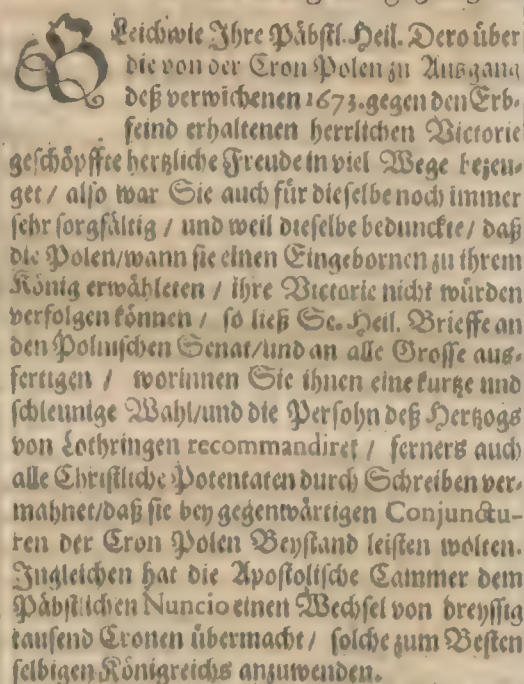 GLeichwie Ihre Päbstl. Heil. Dero über
die von der Cron Polen zu Ausgang
deß verwichenen 1673. gegen den Erb-
feind erhaltenen herrlichen Victorie
geschöpffte hertzliche Freude in viel Wege bezeu-
get / also war Sie auch für dieselbe noch immer
sehr sorgfältig / und weil dieselbe bedunckte / daß
die Polen/wann sie einen Eingebornen zu ihrem
König erwähleten / ihre Victorie nicht würden
verfolgen können / so ließ Se. Heil. Brieffe an
den Polnischen Senat/und an alle Grosse aus-
fertigen / worinnen Sie ihnen eine kurtze und
schleunige Wahl/und die Persohn deß Hertzogs
von Lothringen recommandiret / ferners auch
alle Christliche Potentaten durch Schreiben ver-
mahnet/daß sie bey gegenwärtigen Conjunctu-
ren der Cron Polen Beystand leisten wolten.
Ingleichen hat die Apostolische Cammer dem
Päbstlichen Nuncio einen Wechsel von dreyssig
tausend Cronen übermacht / solche zum Besten
selbigen Königreichs anzuwenden.